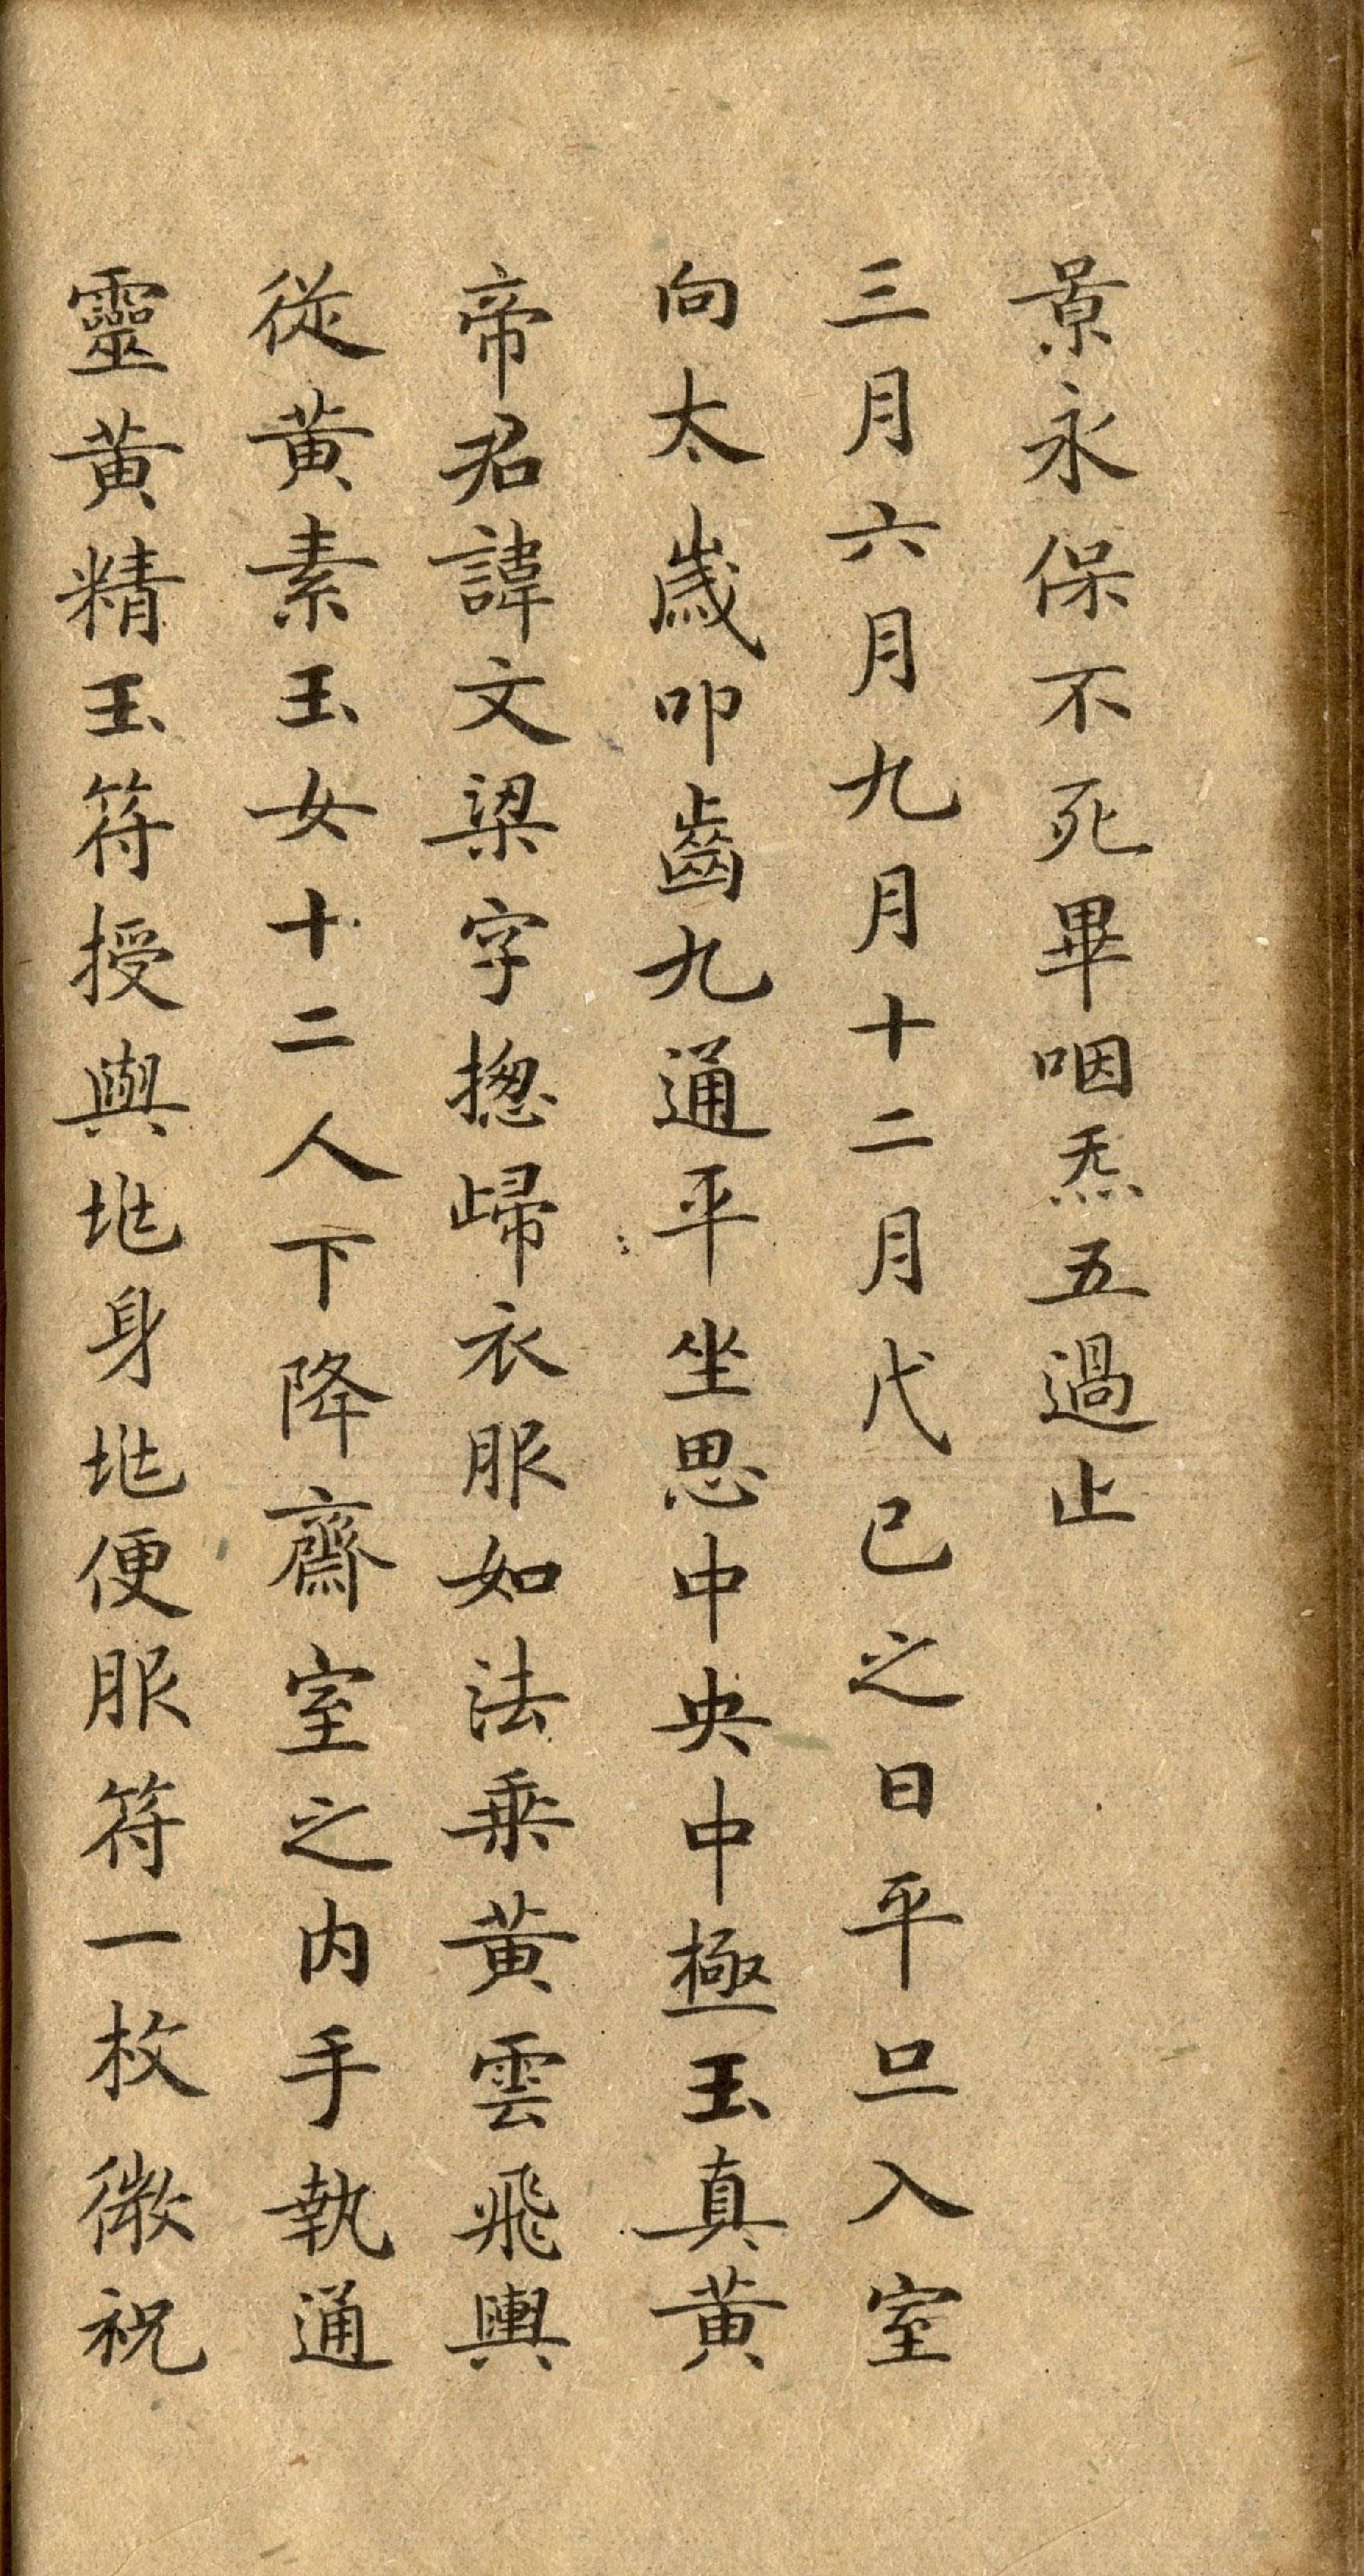 景永保不死畢咽炁五過止
三月六月九月十二月戊己之日平旦入室
向太歲叩齒九通平坐思中央中極玉真黃
帝君諱文梁字揔歸衣服如法乗黃雲飛輿
從黃素玉女十二人下降齋室之内手執通
靈黃精玉符授與地身地便服符一枚微祝